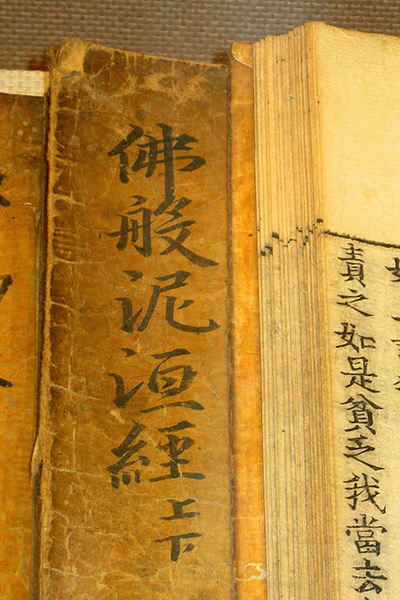 佛般泥洹經上下
責之如是貧乏我當去